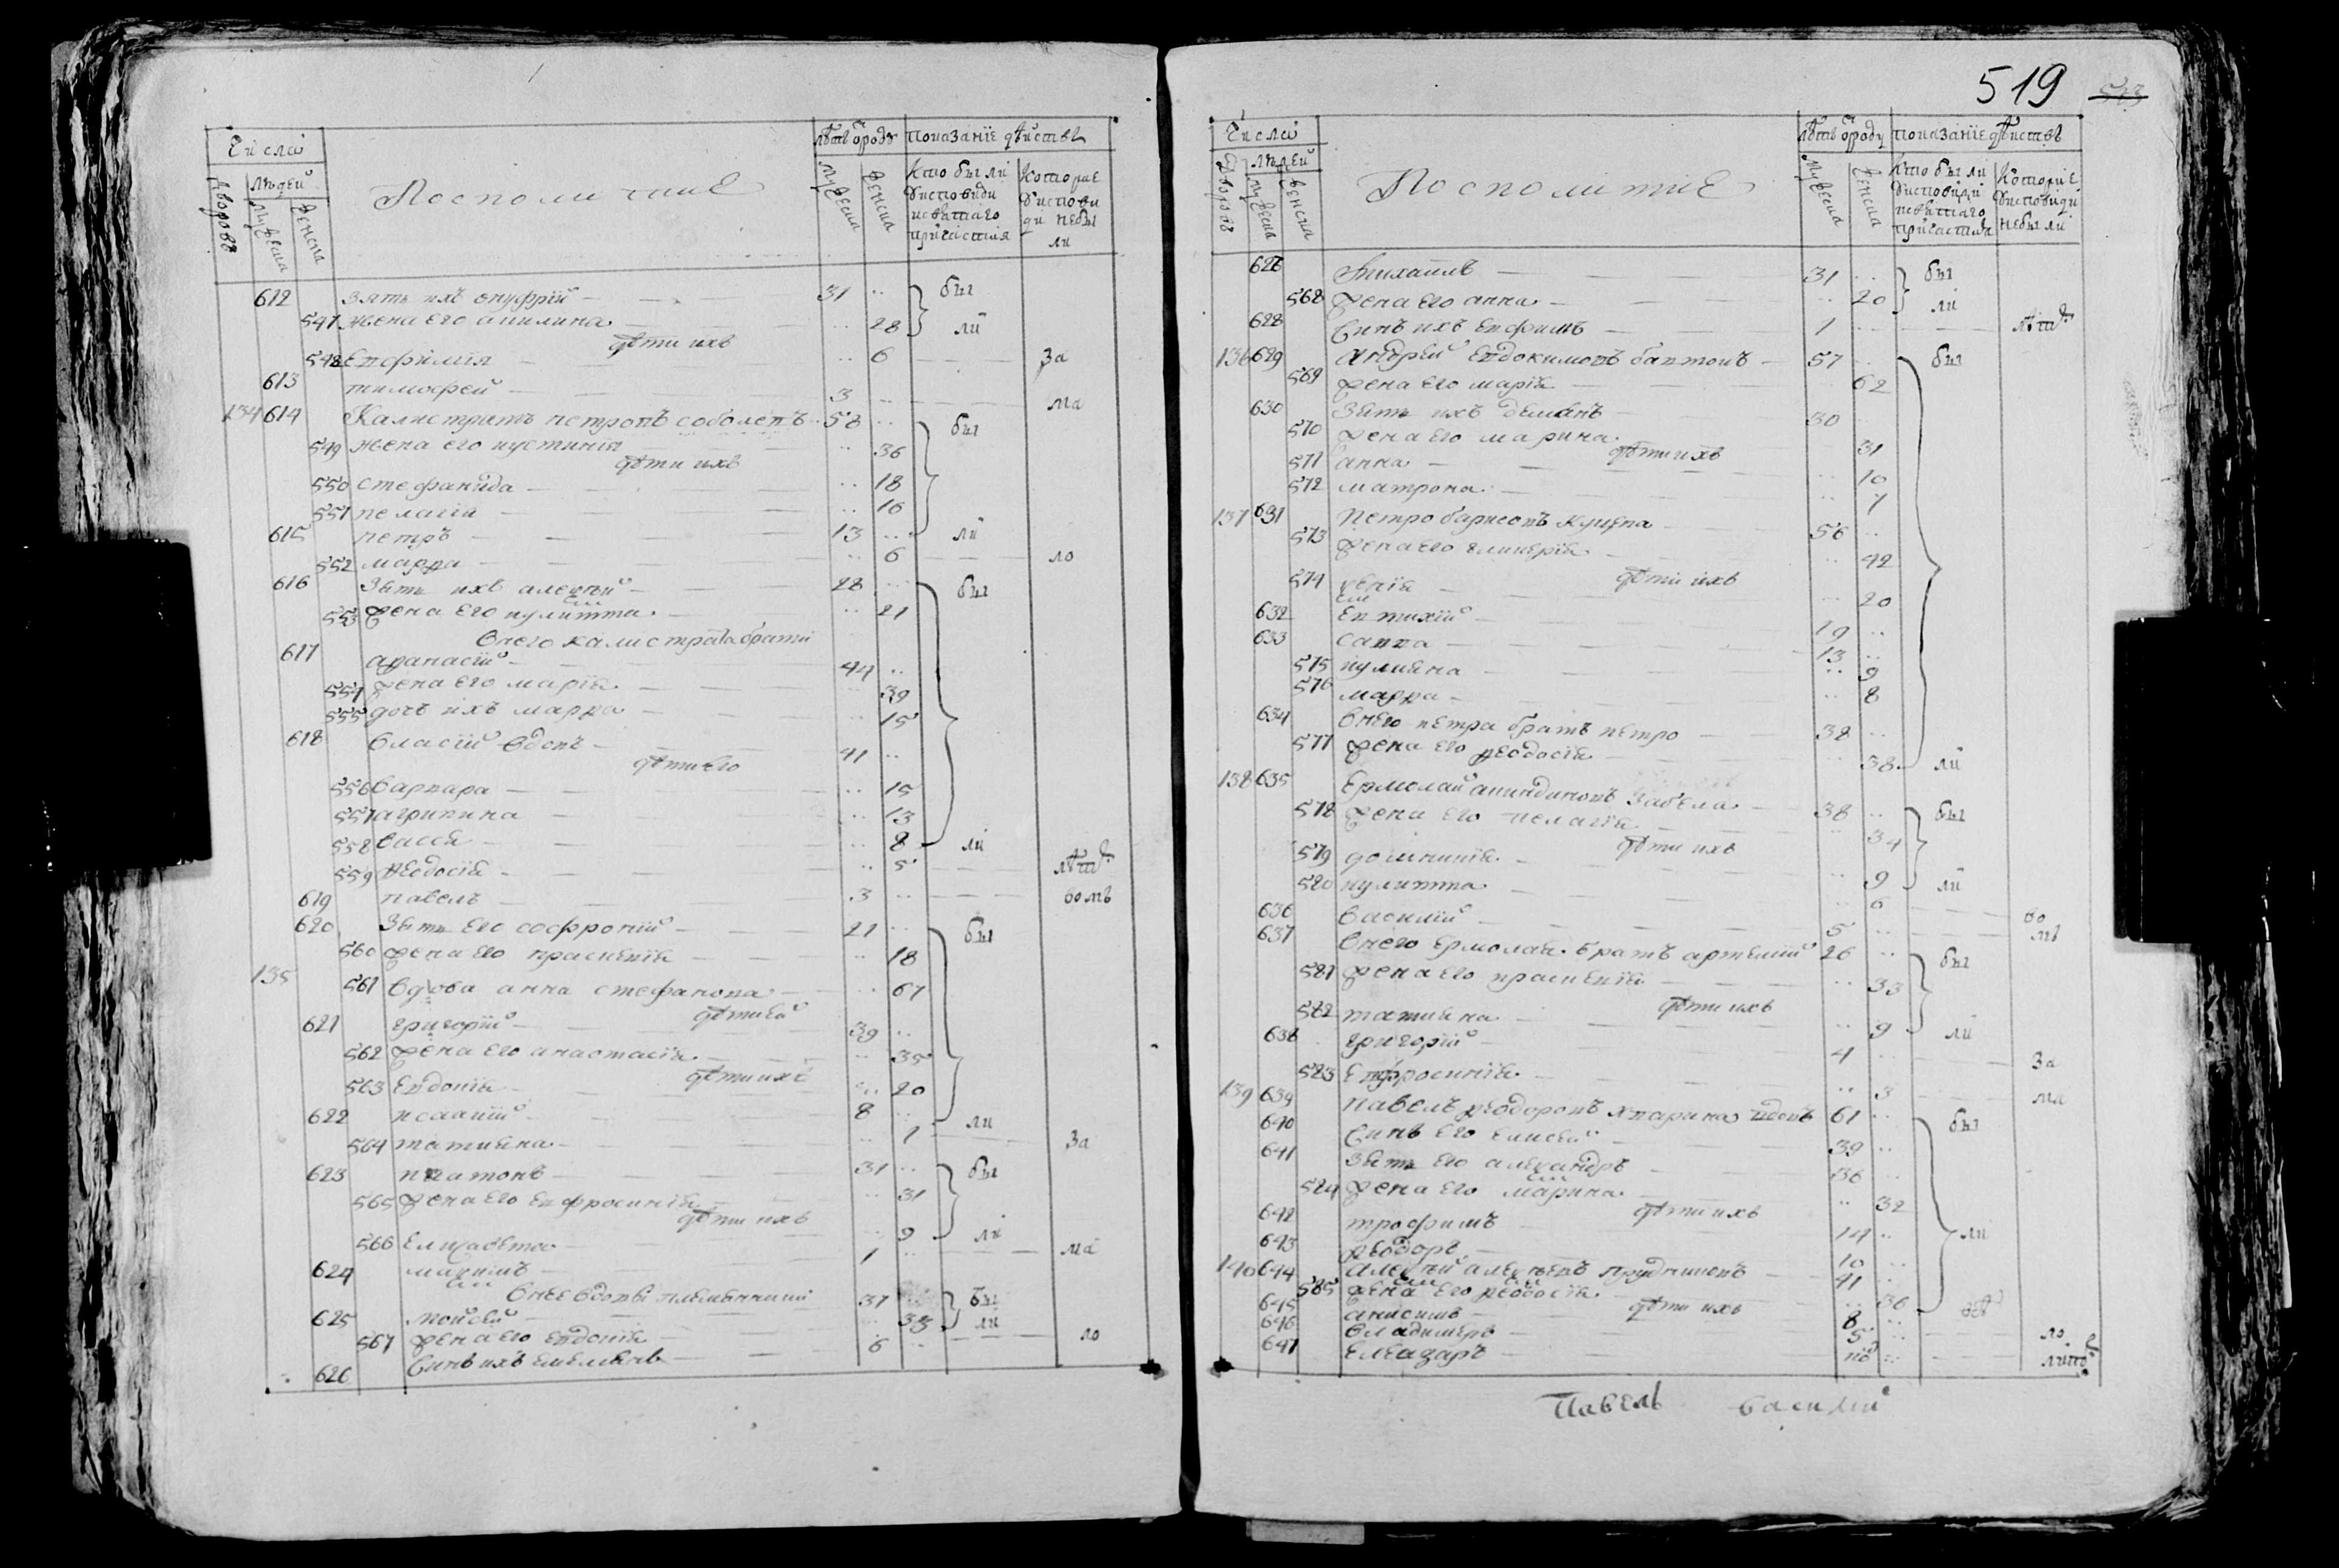 Число
Дворовъ
Людей
Мужеска
Женска
Посполитие
лѣтъ ѿ роду
Мужеска
Женска
показанїе дѣйствъ
Кто были
у исповеди
и святаго
причастия
Которие
у исповеди
не были
612 зять ихъ онуфрїй 31 бы
547 жена его акилина 28 ли
дѣти ихъ
548 Епфимия 6 за
613 тимофей 3 ма
134 614 Калистратъ петровъ соболевъ 58 бы
549 жена его иустиния 36
дѣти ихъ
550 стефанида 18
551 пелагия 16
615 петръ 13 ли
552 марфа 6 ло
616 Зять ихъ алеѯѣй 28 бы
553 жена его иулитта 21
Онего калистрата брати
617 афанасїй 44
554 жена его марїя 39
555 дочъ ихъ марфа 15
618 власїй вдовъ 41
дѣти его
556 варвара 15
557 агрипина 13
558 васса 8 ли
559 феодосїя 5 лѣт
619 павелъ 3 вомъ
620 Зять его софронїй 21 бы
560 жена его праскевїя 18
135 561 вдова анна стефанова 67
дѣти ей
621 григорїй 39
562 жена его анастасїя 35
дѣти ихъ
563 Евдокїя 20
622 исаакїй 8 ли
564 татияна 1 За
623 платонъ 31 бы
565 жена его Епфросинїя 31
дѣти ихъ
566 Елисавета 9 ли
624 максимъ 1 ма
Онее вдови племянники
625 мойсей 37 бы
567 жена его евдокїя 33 ли
626 Синъ ихъ емелиянъ 6 ло
519
513
Число
Дворовъ
Людей
Мужеска
Женска
Посполитие
лѣтъ ѿ роду
Мужеска
Женска
показанїе дѣйствъ
Кто были
у исповеди
и святаго
причастия
Которие
у исповеди
не были
627 Михаилъ 31 бы
568 жена его анна 20 ли
628 Синъ ихъ Епфимъ 1 лѣт
136 629 андрей Евдокимовъ баптовъ 57 бы
569 жена его марїя 62
630 Зять ихъ демянъ 30
570 жена его марина 31
дѣти ихъ
571 анна 10
572 матрона 7
137 631 Петро барисовъ Куцепа 56
573 жена его гликерїя 42
дѣти ихъ
574 ѯенїя 20
632 Евтихїй 19
633 савва 13
575 иулияна 9
576 марфа 8
634 Онего петра братъ петро 38
577 жена его феодосїя 38 ли
138 635 Ермолай акиндиновъ Забела 38 бы
578 жена его пелагїя 34
дѣти ихъ
579 домникїя 9
580 иулитта 6 ли
636 василїй 5 во
637 Онего Ермолая братъ артемїй 26 мъ бы
581 жена его праскевїя 33
дѣти ихъ
582 татияна 9 ли
638 григорїй 4 за
583 Епфросинїя 3 ма
139 639 павелъ феодоровъ хпарина вдовъ 61 бы
640 Синъ его Елисей 39
641 Зять его алеѯандръ 36
584 жена его марина 32
дѣти ихъ
642 трофимъ 14 ли
643 феодоръ 10
140 644 алеѯѣй алеѯѣевъ прудниковъ 41
585 жена его феодосїя 36
дѣти ихъ
645 анисимъ 8
646 владимеръ 5 ло
647 Елеазаръ лито
Павелъ василїй